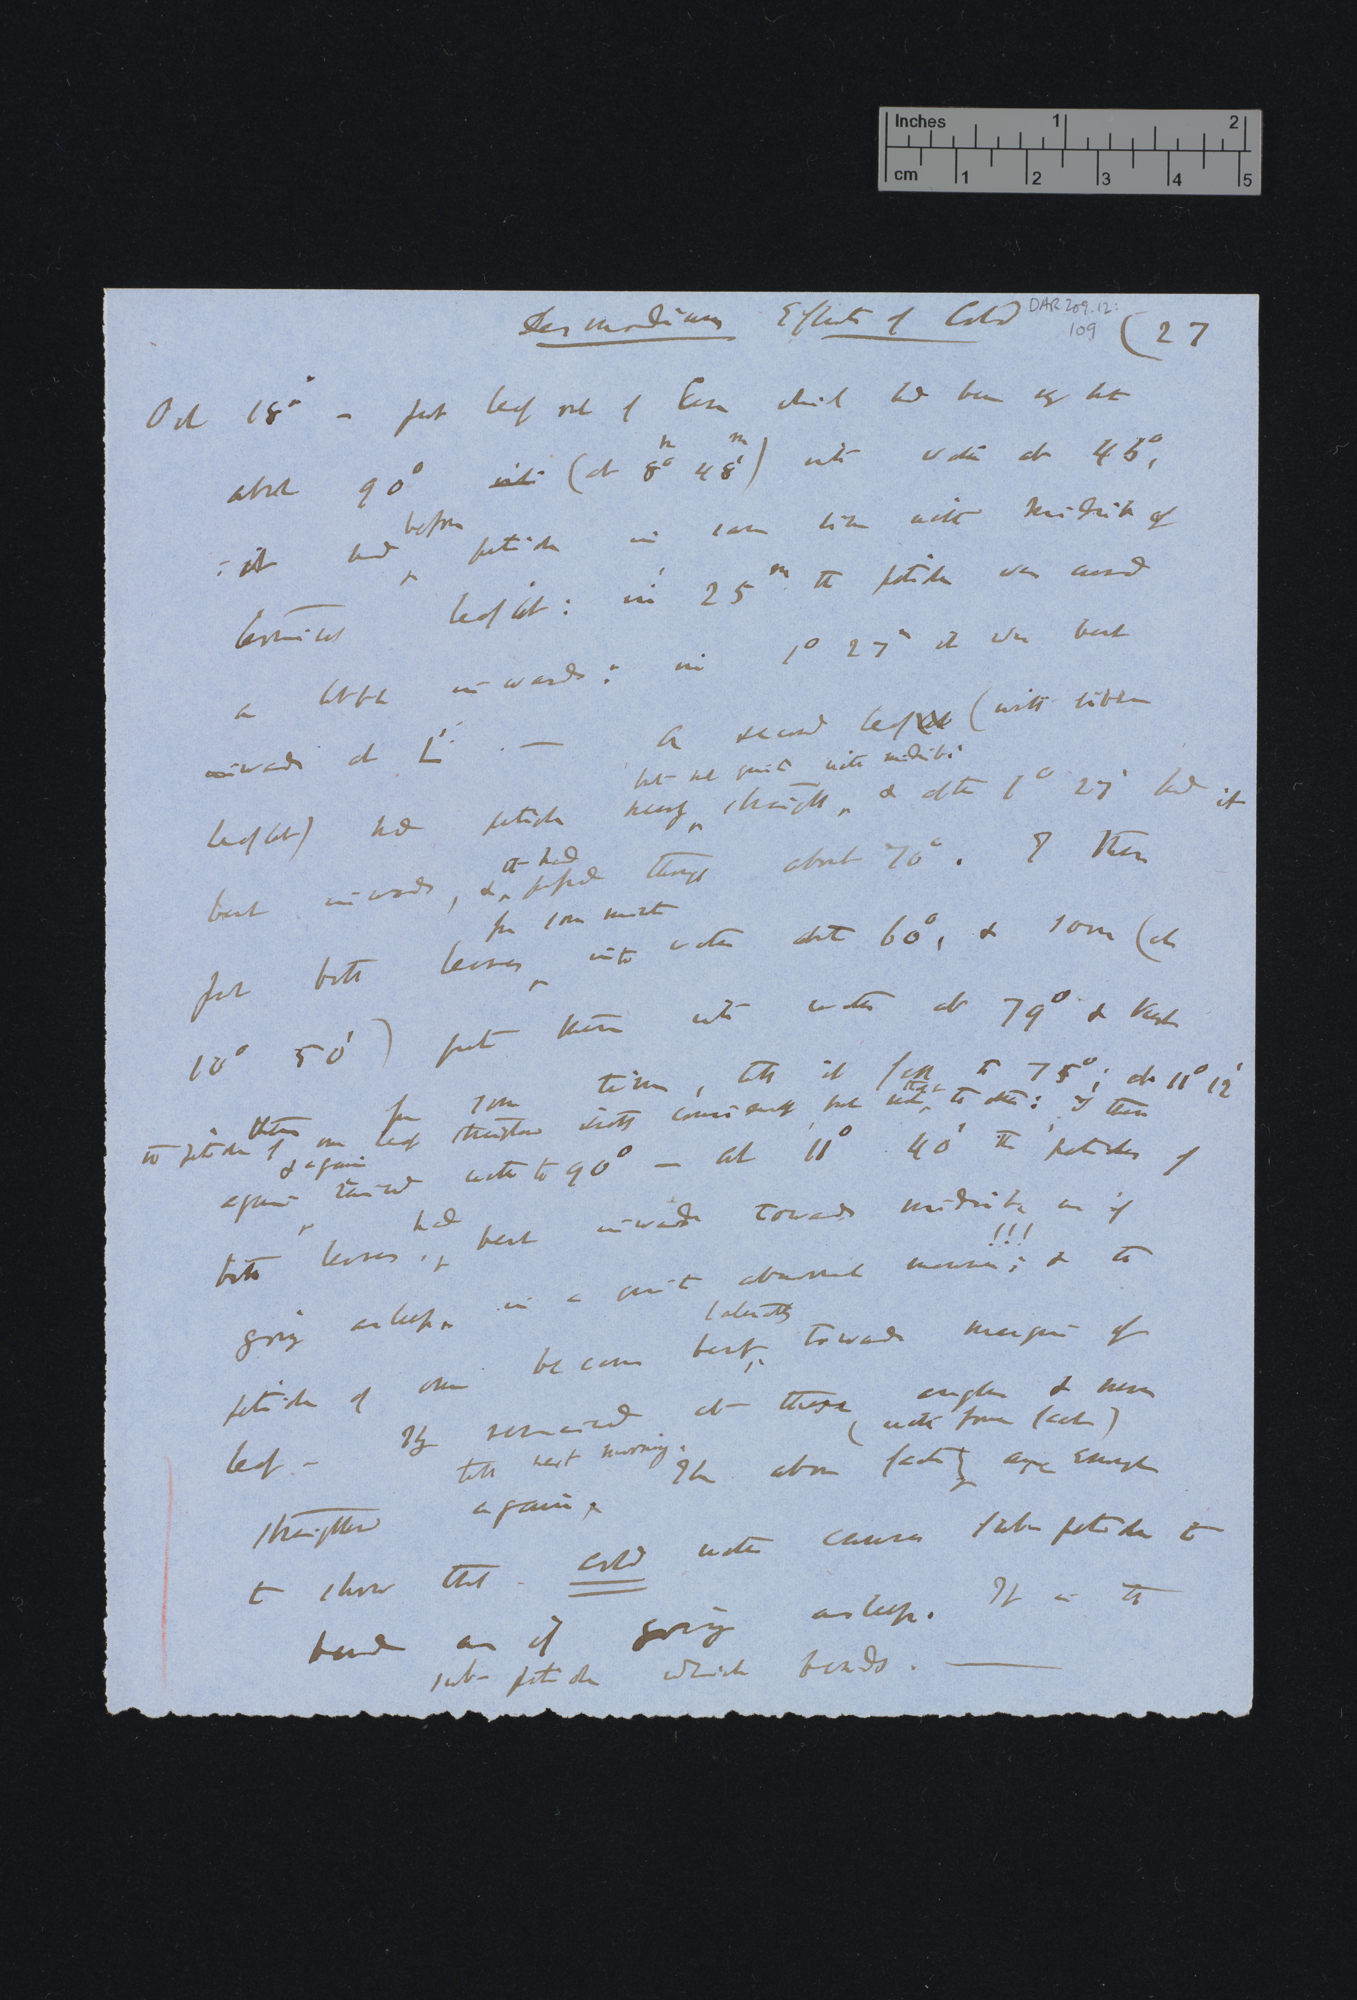 Inches 1 2
cm 1 2 3 4 5
DAR 209.12:
109
Desmodium Effects of Cold (27
Oct 18° — put leaf out of which had been kept
about 90° (at 8° 48') into water at 45°,
it had before petiole in same line with midrib of
terminal leaflet: in 25m the petiole was curved
a little inwards: in 1° 27m it was bent
inwards at L. — A second leaf (with
leaflet) had petiole nearly straight, but not quite with midrib: & after 1° 27' had it
bent inwards, & it had passed through about 70°. I then
put both leaves for some minutes into water about 60°, & soon (at
10° 50') put them into water at 79° & kept
them for some time, till it fell to 75°; at 11° 12'
the petiole of one leaf straightened itself considerably, but not to other: I then
again & again raised water to 90° — at 11° 40' the petioles of
both leaves had bent inwards towards midrib as if
going asleep, in a quite abnormal manner!!!; & the
petiole of one became bent laterally towards margin of
leaf — They remained at these angles & never
straightened again till next morning. The above facts (with former facts) are enough
to show that cold water causes sub-petiole to
bend as if going asleep. It is the
sub-petiole which bends. —